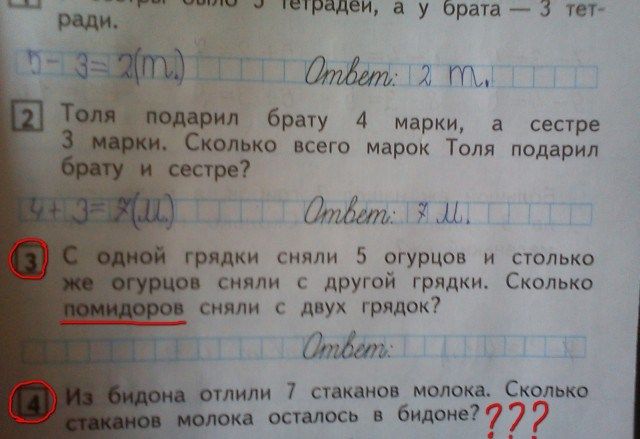 было 5 тетрадей, а у брата — 3 тет-
ради.
5 - 3 = 2(т.) Ответ: 2 т.
2 Толя подарил брату 4 марки, а сестре
3 марки. Сколько всего марок Толя подарил
брату и сестре?
4 + 3 = 7(м.) Ответ: 7 м.
3 С одной грядки сняли 5 огурцов и столько
же огурцов сняли с другой грядки. Сколько
помидоров сняли с двух грядок?
Ответ:
4 Из бидона отлили 7 стаканов молока. Сколько
стаканов молока осталось в бидоне? ???